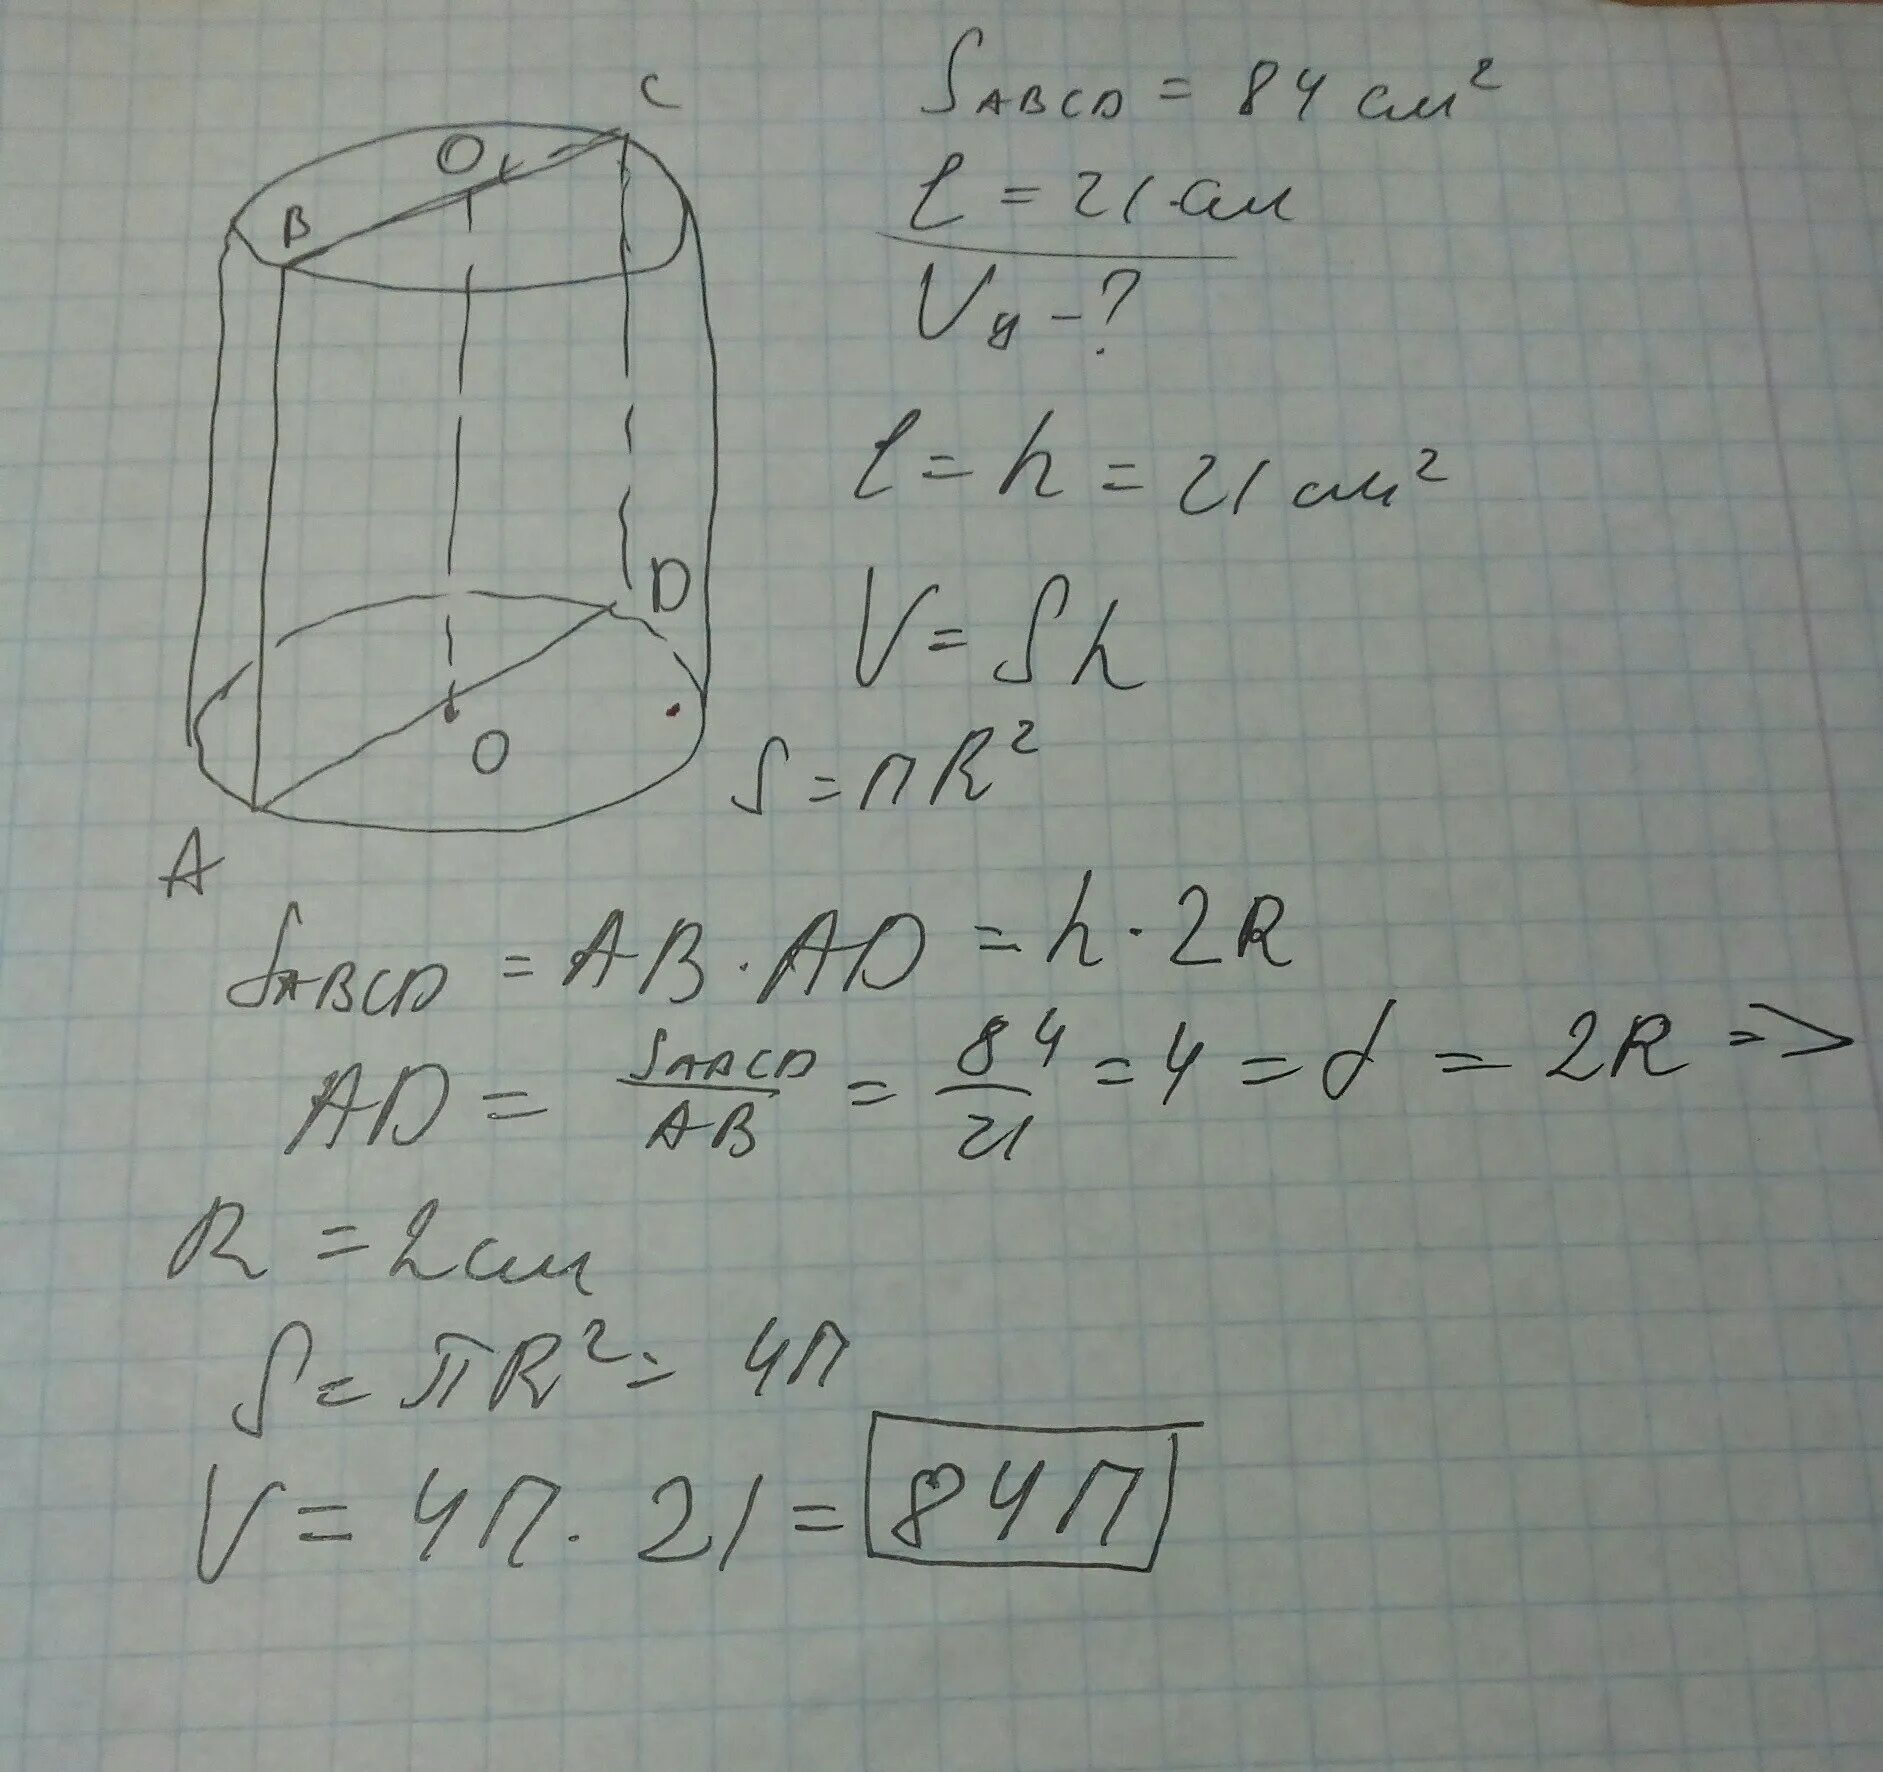 C
O₁
B
D
O
A
S_ABCD = 84 см²
l = 21 см
Vц - ?
l = h = 21 см²
V = Sh
S = пR²
S_ABCD = AB · AD = h · 2R
AD = S_ABCD / AB = 84 / 21 = 4 = d = 2R =>
R = 2 см
S = πR² = 4п
V = 4п · 21 = 84п